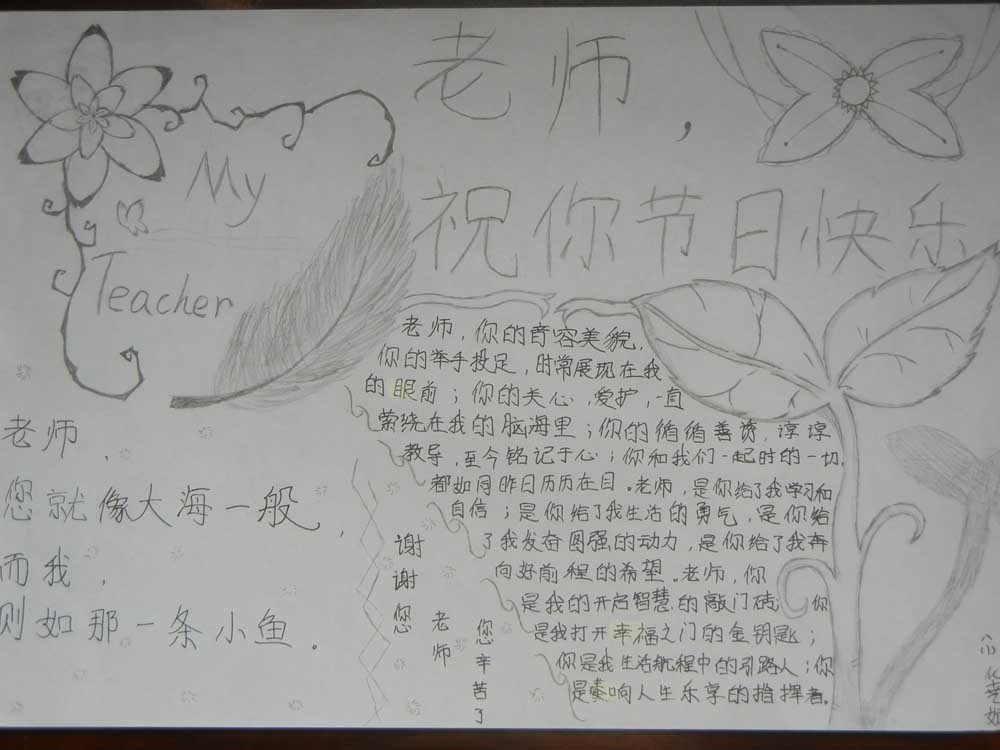 老师，
祝你节日快乐
My
Teacher
老师，
您就像大海一般，
而我，
则如那一条小鱼。
老师，你的音容美貌，
你的举手投足，时常展现在我
的眼前；你的关心，爱护，一直
萦绕在我的脑海里；你的循循善诱，谆谆
教导，至今铭记于心；你和我们一起时的一切，
都如同昨日历历在目。老师，是你给了我学习和
自信；是你给了我生活的勇气，是你给
了我发奋图强的动力，是你给了我奔
向好前程的希望。老师，你
是我的开启智慧的敲门砖 你
是我打开幸福之门的金钥匙；
你是我生活航程中的引路人；你
是奏响人生乐享的指挥者。
谢谢您
老师
您辛苦了